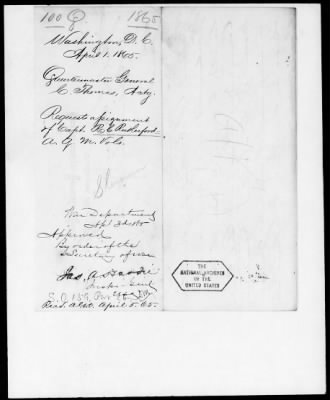 100 Q 1865
Washington, D. C.
April 1. 1865.
Quartermaster General
C. Thomas, Actg.
Requests assignment
of Capt. R. C. Rutherford
A. Q. M. Vols.
War Department
Ap'l 3d 1865
Approved
By order of the
Secretary of War
Jas. A. Hardie
Insp. Genl
S. O. 159, Par
Recd. A.G.O. April 5. 65.
THE
NATIONAL ARCHIVES
OF THE
UNITED STATES